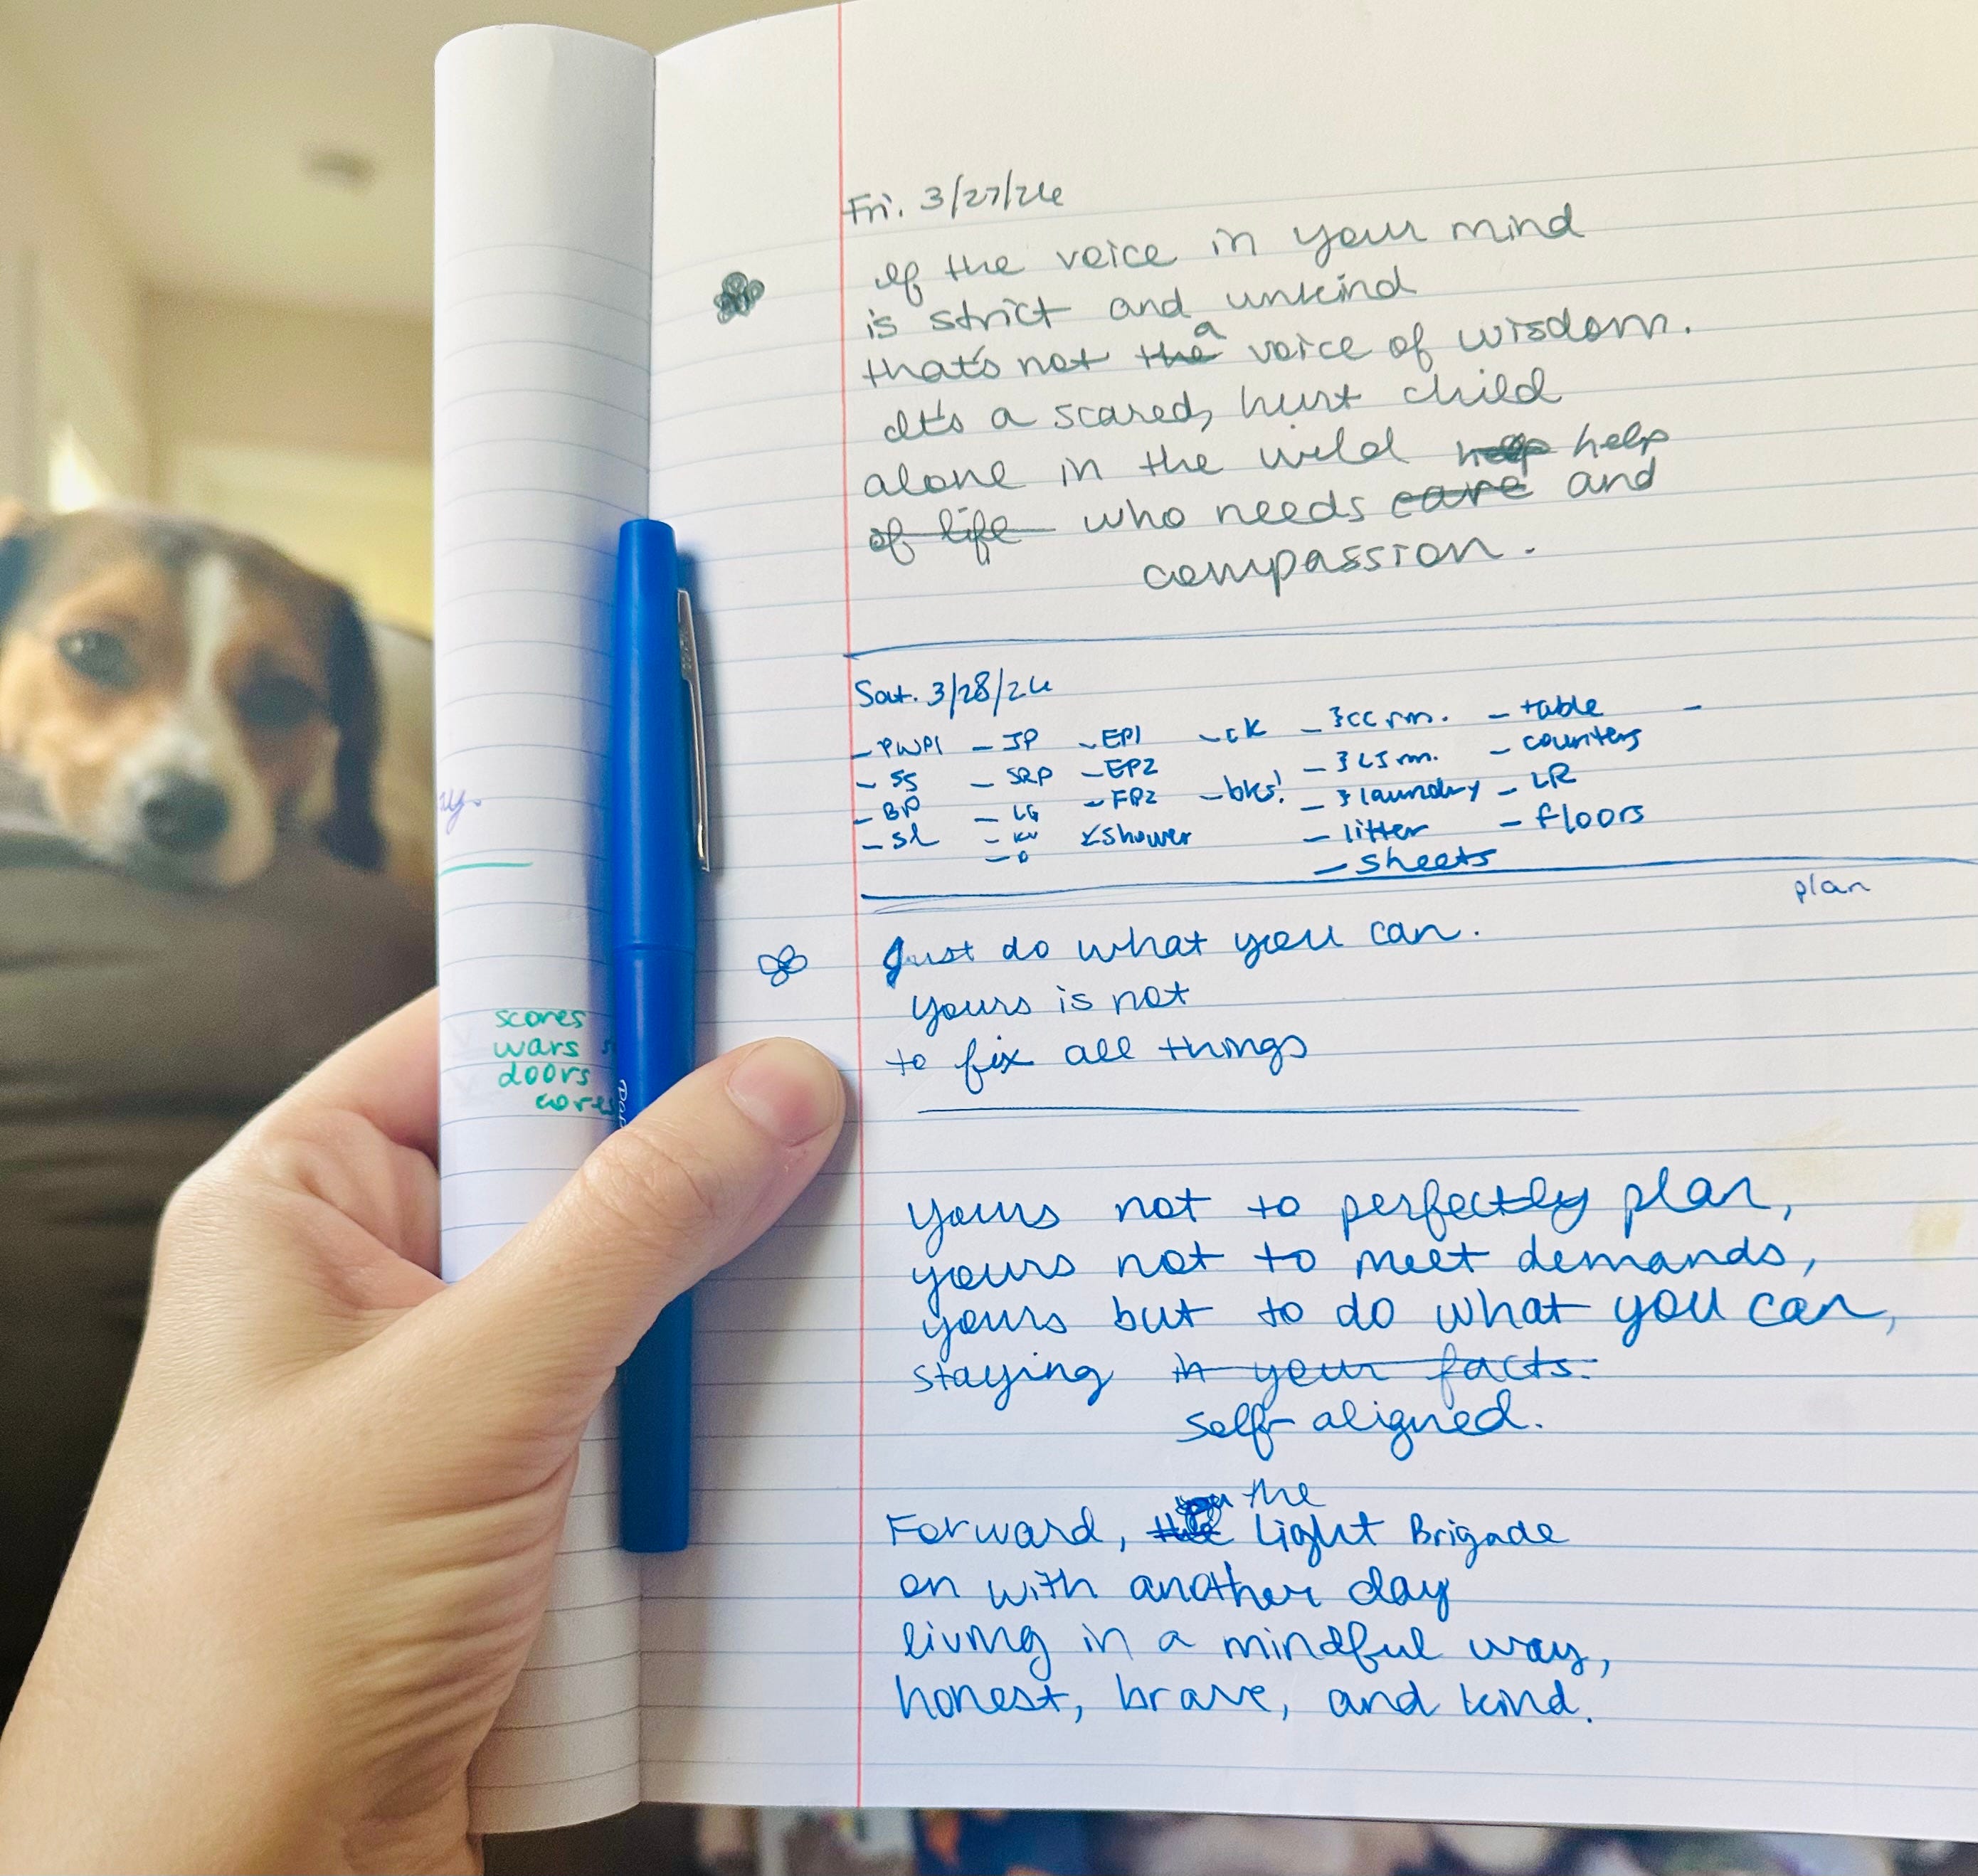 Fri. 3/27/26
If the voice in your mind
is strict and unkind
that's not the a voice of wisdom.
It's a scared, hurt child
alone in the wild help help
of life who needs care and
compassion.
Sat. 3/28/26
- PWP1 - JP - EP1 - CK - }CC rm. - table -
- SS - SRP - EP2 - }LS rm. - counters
- BP - LG - FP2 - bks! - } laundry - LR
- SL - KV shower - litter - floors
- D - sheets
plan
Just do what you can.
Yours is not
to fix all things
scores
wars
doors
cores
Yours not to perfectly plan,
yours not to meet demands,
yours but to do what you can,
staying in your facts.
self-aligned.
the
Forward, the Light Brigade
on with another day
living in a mindful way,
honest, brave, and kind.